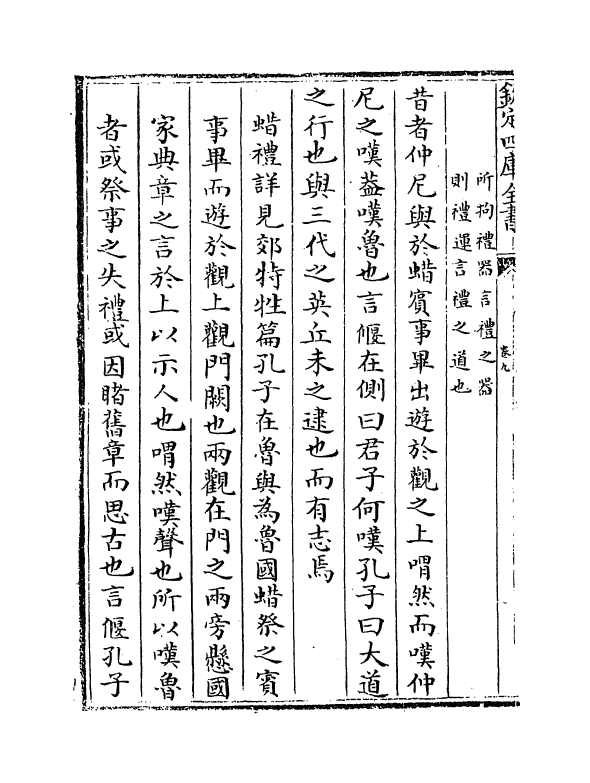 欽定四庫全書
卷九
所拘禮器言禮之器
則禮運言禮之道也
昔者仲尼與於蜡賓事畢出遊於觀之上喟然而嘆仲
尼之嘆葢嘆魯也言偃在側曰君子何嘆孔子曰大道
之行也與三代之英丘未之逮也而有志焉
蜡禮詳見郊特牲篇孔子在魯與為魯國蜡祭之賓
事畢而遊於觀上觀門闕也兩觀在門之兩旁懸國
家典章之言於上以示人也喟然嘆聲也所以嘆魯
者或祭事之失禮或因睹舊章而思古也言偃孔子